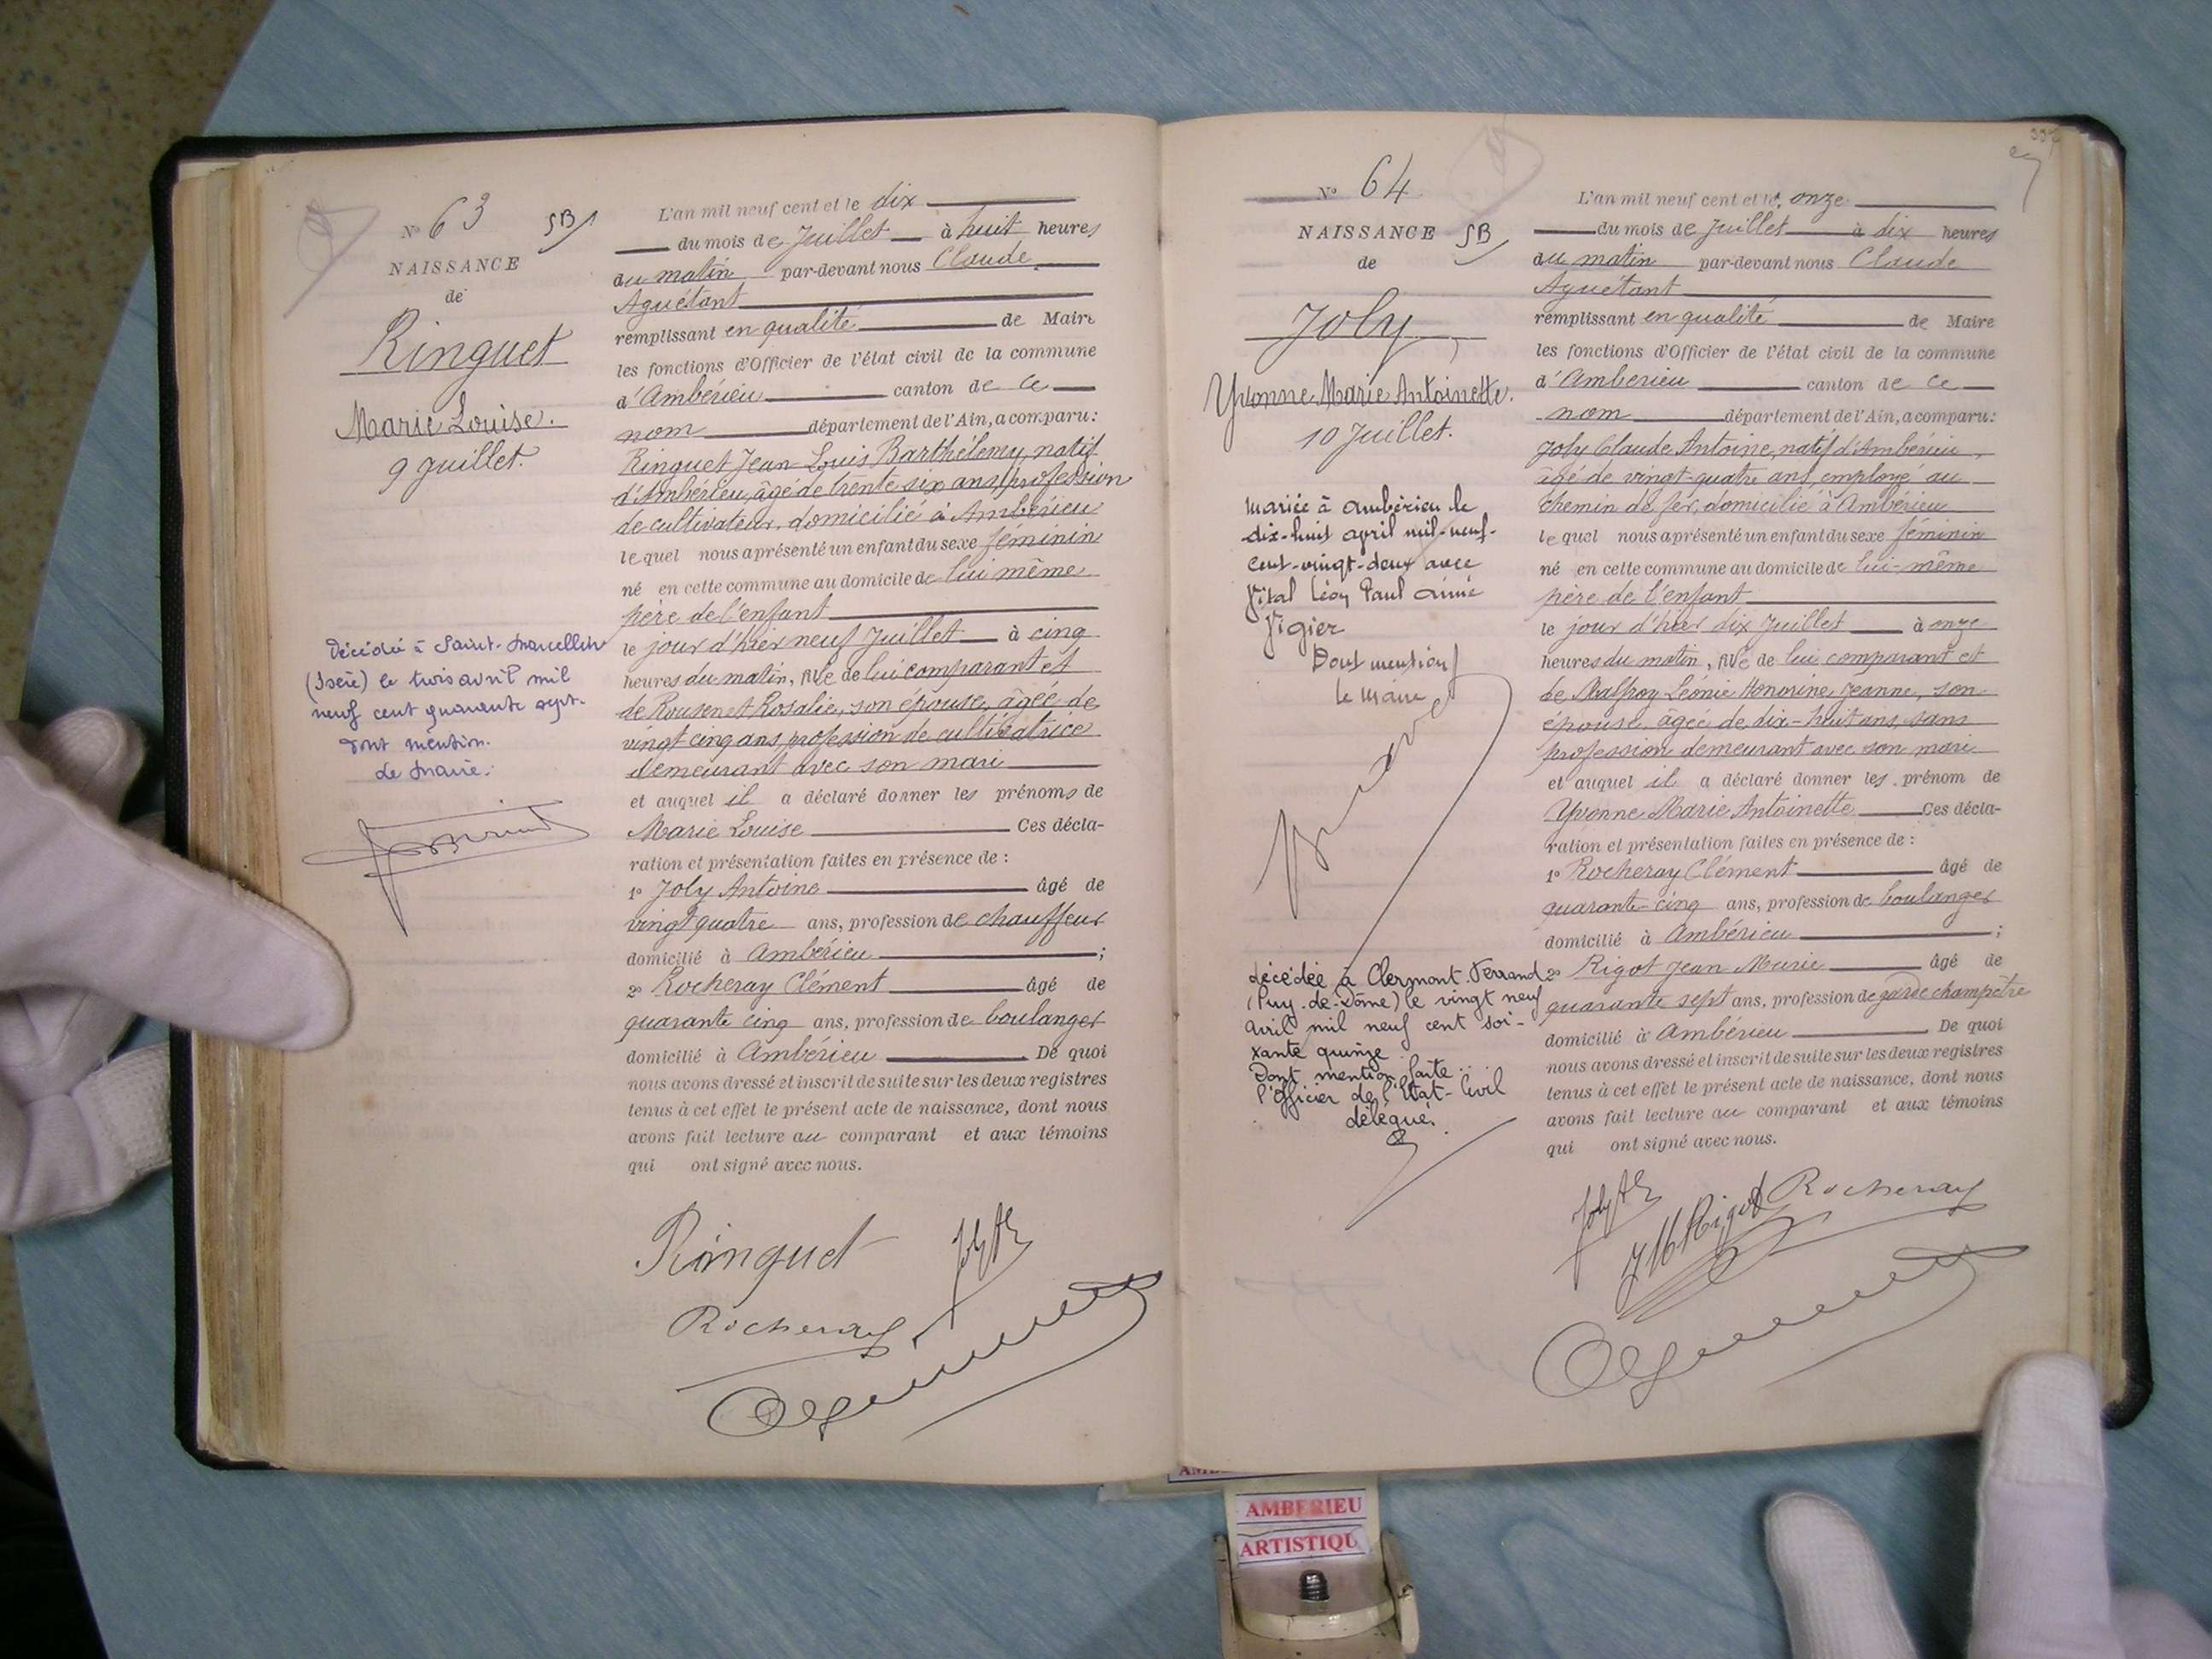 N° 63 SB
NAISSANCE
de
Ringuet
Marie Louise.
9 Juillet.
Décédée à Saint-Marcellin
(Isère) le trois avril mil
neuf cent quarante sept.
dont mention.
Le Maire:
L'an mil neuf cent et le dix
du mois de Juillet à huit heures
du matin par-devant nous Claude
Aguétant
remplissant en qualité de Maire
les fonctions d'Officier de l'état civil de la commune
d'Ambérieu canton de ce
nom département de l'Ain, a comparu:
Ringuet Jean-Louis Barthélemy, natif
d'Ambérieu, âgé de trente six ans, profession
de cultivateur, domicilié à Ambérieu
lequel nous a présenté un enfant du sexe féminin
né en cette commune au domicile de lui même
père de l'enfant
le jour d'hier neuf Juillet à cinq
heures du matin, née de lui comparant et
de Rousenet Rosalie, son épouse, âgée de
vingt cinq ans, profession de cultivatrice
demeurant avec son mari
et auquel il a déclaré donner les prénoms de
Marie Louise Ces décla-
ration et présentation faites en présence de :
1° Joly Antoine âgé de
vingt quatre ans, profession de chauffeur
domicilié à Ambérieu ;
2° Rocheray Clément âgé de
quarante cinq ans, profession de boulanger
domicilié à Ambérieu De quoi
nous avons dressé et inscrit de suite sur les deux registres
tenus à cet effet le présent acte de naissance, dont nous
avons fait lecture au comparant et aux témoins
qui ont signé avec nous.
Ringuet
Joly
Rocheray
N° 64
NAISSANCE SB
de
Joly
Yvonne Marie Antoinette.
10 Juillet.
Mariée à Ambérieu le
dix-huit avril mil-neuf-
cent-vingt-deux avec
Vital Léon Paul Aimé
Vigier
Dont mention
Le Maire
décédée à Clermont-Ferrand
(Puy-de-Dôme) le vingt neuf
avril mil neuf cent soi-
xante quinze.
Dont mention faite
l'Officier de l'Etat-Civil
délégué.
L'an mil neuf cent et le onze
du mois de Juillet à dix heures
du matin par-devant nous Claude
Aguétant
remplissant en qualité de Maire
les fonctions d'Officier de l'état civil de la commune
d'Ambérieu canton de ce
nom département de l'Ain, a comparu:
Joly Claude Antoine, natif d'Ambérieu,
âgé de vingt-quatre ans, employé au
chemin de fer, domicilié à Ambérieu
lequel nous a présenté un enfant du sexe féminin
né en cette commune au domicile de lui-même
père de l'enfant
le jour d'hier dix Juillet à onze
heures du matin, née de lui comparant et
de Malfroy Léonie Honorine Jeanne, son
épouse, âgée de dix-huit ans, sans
profession demeurant avec son mari
et auquel il a déclaré donner les prénom de
Yvonne Marie Antoinette Ces décla-
ration et présentation faites en présence de :
1° Rocheray Clément âgé de
quarante-cinq ans, profession de boulanger
domicilié à Ambérieu ;
2° Rigot Jean Marie âgé de
quarante sept ans, profession de garde champêtre
domicilié à Ambérieu De quoi
nous avons dressé et inscrit de suite sur les deux registres
tenus à cet effet le présent acte de naissance, dont nous
avons fait lecture au comparant et aux témoins
qui ont signé avec nous.
Joly
JM Rigot
Rocheray
AMBERIEU
ARTISTIQU